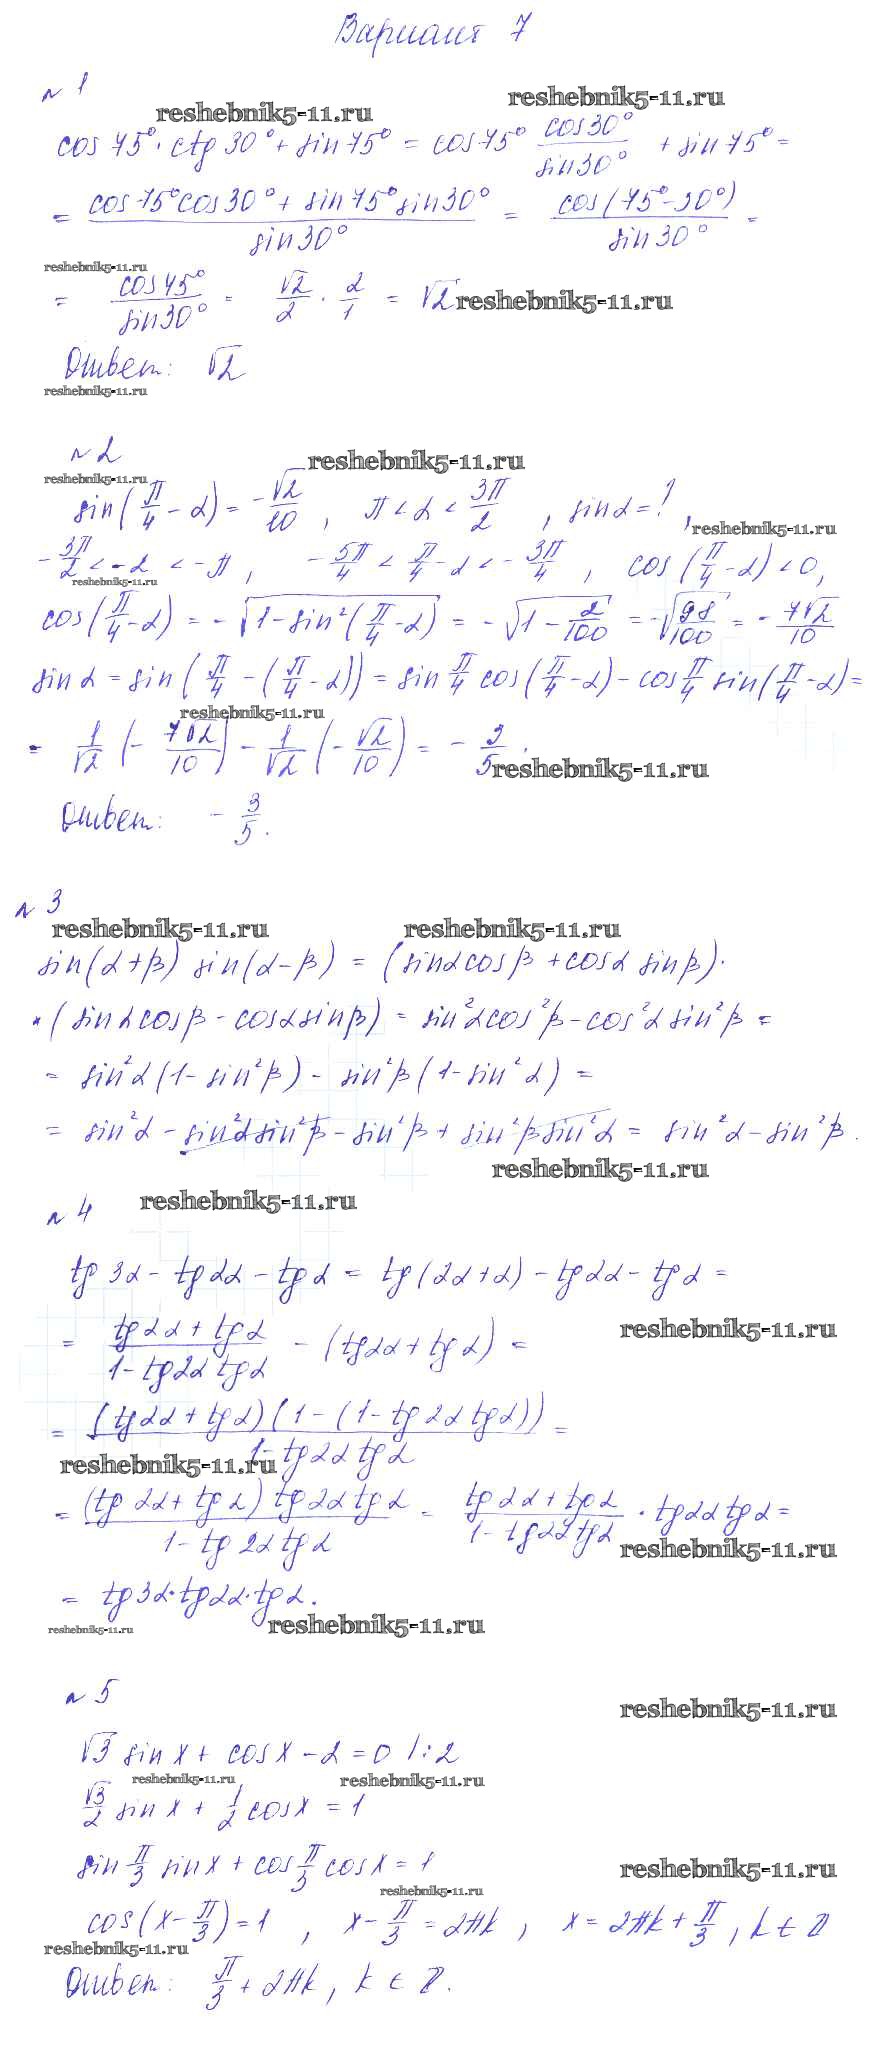 Вариант 7
№ 1
reshebnik5-11.ru reshebnik5-11.ru
cos 75° · ctg 30° + sin 75° = cos 75° cos 30° / sin 30° + sin 75° =
= (cos 75° cos 30° + sin 75° sin 30°) / sin 30° = cos(75° - 30°) / sin 30° =
reshebnik5-11.ru
= cos 45° / sin 30° = √2/2 · 2/1 = √2 reshebnik5-11.ru
Ответ: √2
reshebnik5-11.ru
№ 2
reshebnik5-11.ru reshebnik5-11.ru
sin(π/4 - α) = -√2/10 , π < α < 3π/2 , sin α = ? ,
reshebnik5-11.ru
-3π/2 < -α < -π , -5π/4 < π/4 - α < -3π/4 , cos(π/4 - α) < 0,
reshebnik5-11.ru
cos(π/4 - α) = -√(1 - sin²(π/4 - α)) = -√(1 - 2/100) = -√(98/100) = -7√2/10
sin α = sin(π/4 - (π/4 - α)) = sin π/4 cos(π/4 - α) - cos π/4 sin(π/4 - α) =
reshebnik5-11.ru
= 1/√2 (-7√2/10) - 1/√2 (-√2/10) = -3/5 .
reshebnik5-11.ru
Ответ: -3/5.
№ 3
reshebnik5-11.ru reshebnik5-11.ru
sin(α+β) sin(α-β) = (sin α cos β + cos α sin β) ·
· (sin α cos β - cos α sin β) = sin²α cos²β - cos²α sin²β =
= sin²α (1 - sin²β) - sin²β (1 - sin²α) =
= sin²α - sin²α sin²β - sin²β + sin²β sin²α = sin²α - sin²β .
reshebnik5-11.ru
№ 4
reshebnik5-11.ru
tg 3α - tg 2α - tg α = tg(2α+α) - tg 2α - tg α =
reshebnik5-11.ru
= (tg 2α + tg α) / (1 - tg 2α tg α) - (tg 2α + tg α) =
= (tg 2α + tg α)(1 - (1 - tg 2α tg α)) / (1 - tg 2α tg α) =
reshebnik5-11.ru
= (tg 2α + tg α) tg 2α tg α / (1 - tg 2α tg α) = (tg 2α + tg α) / (1 - tg 2α tg α) · tg 2α tg α =
reshebnik5-11.ru
= tg 3α · tg 2α · tg α .
reshebnik5-11.ru reshebnik5-11.ru
№ 5
reshebnik5-11.ru
√3 sin x + cos x - 2 = 0 | : 2
reshebnik5-11.ru reshebnik5-11.ru
√3/2 sin x + 1/2 cos x = 1
sin π/3 sin x + cos π/3 cos x = 1
reshebnik5-11.ru
reshebnik5-11.ru
cos(x - π/3) = 1 , x - π/3 = 2πk , x = 2πk + π/3 , k ∈ Z
reshebnik5-11.ru
Ответ: π/3 + 2πk , k ∈ Z .